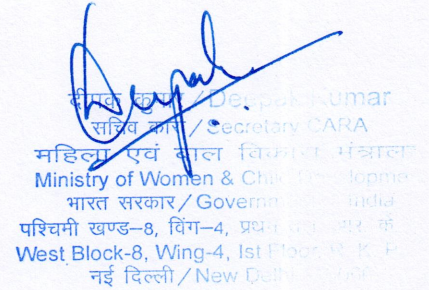 Deepak
दीपक कुमार / Deepak Kumar
सचिव कारा / Secretary CARA
महिला एवं बाल विकास मंत्रालय
Ministry of Women & Child Developme
भारत सरकार / Governm India
पश्चिमी खण्ड–8, विंग–4, प्रथम तल, आर. के.
West Block-8, Wing-4, Ist Floor, R. K. P
नई दिल्ली / New Delhi